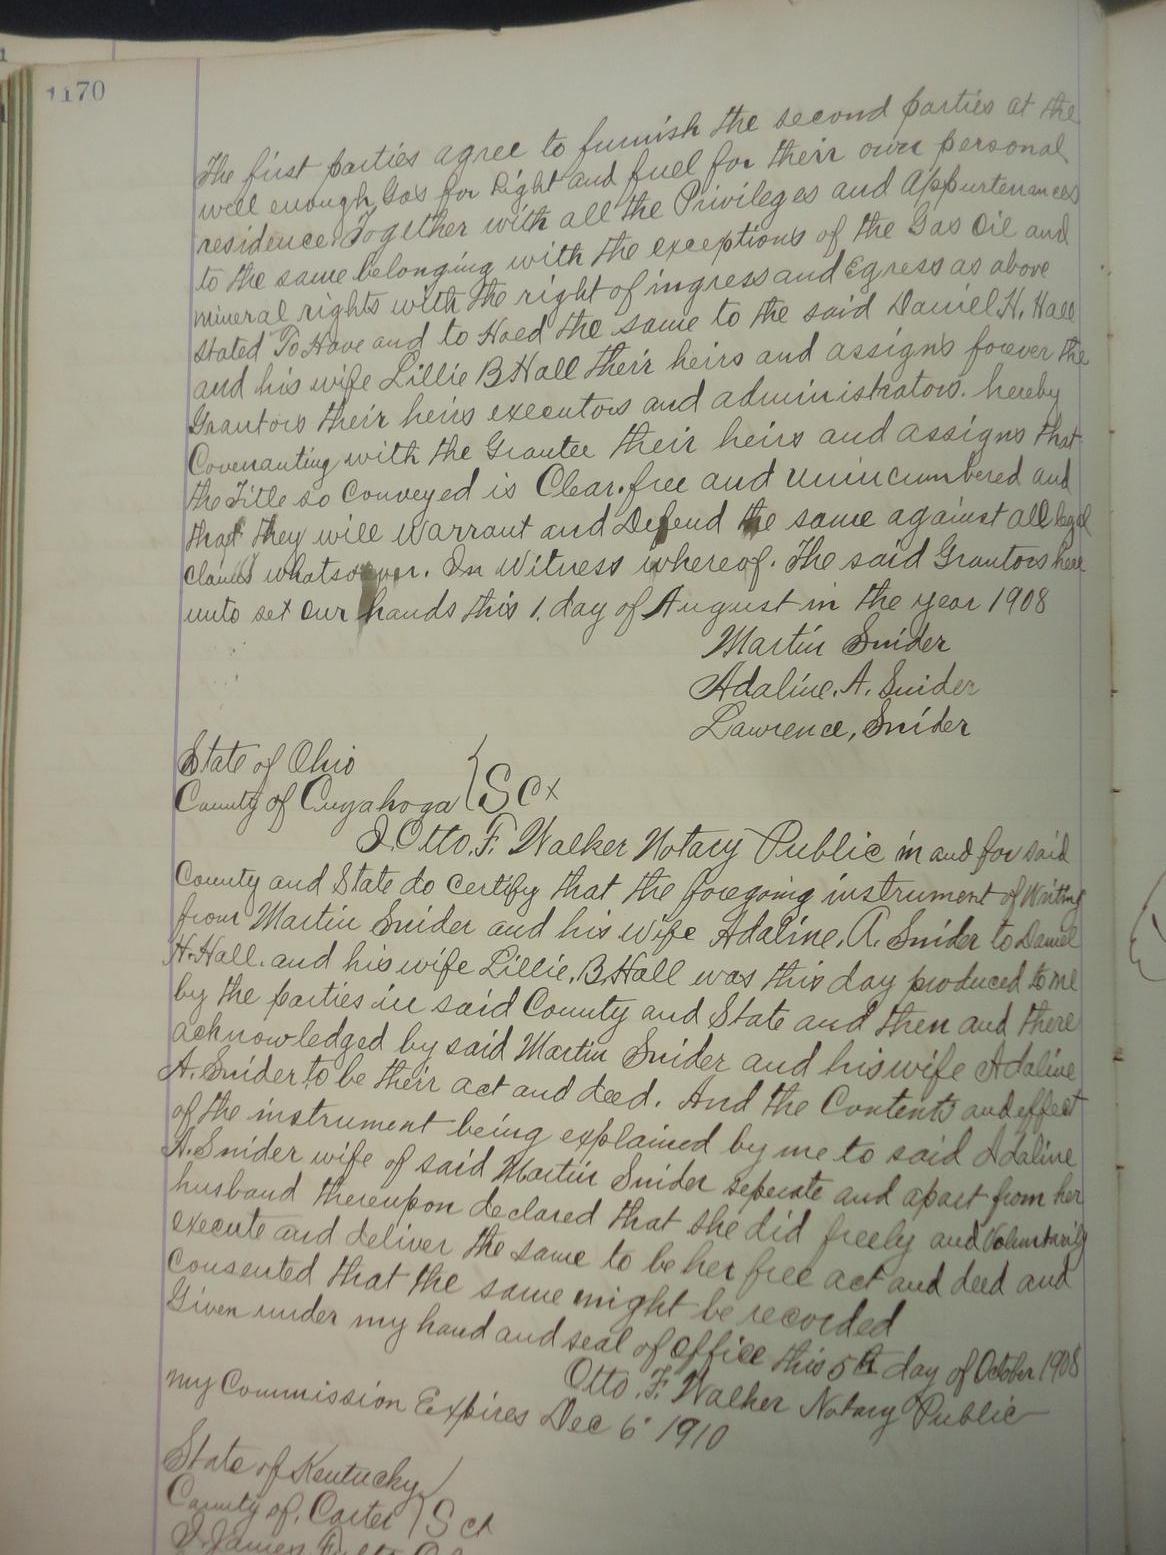 170
The first parties agree to furnish the second parties at the
well enough Gas for Light and fuel for their own personal
residence. Together with all the Privileges and Appurtenances
to the same belonging with the exceptions of the Gas Oil and
mineral rights with the right of ingress and Egress as above
stated To Have and to Hold the same to the said Daniel H. Hall
and his wife Lillie B Hall their heirs and assigns forever the
Grantors their heirs executors and administrators. hereby
Covenanting with the Grantee their heirs and assigns that
the Title so Conveyed is Clear. free and unincumbered and
that they will Warrant and Defend the same against all legal
claims whatsoever. In Witness whereof. The said Grantors here
unto set our hands this 1. day of August in the year 1908
Martin Snider
Adaline. A. Snider
Lawrence, Snider
State of Ohio
County of Cuyahoga } Sct
I. Otto. F. Walker Notary Public in and for said
County and State do certify that the foregoing instrument of Writing
from Martin Snider and his Wife Adaline. A. Snider to Daniel
H. Hall. and his wife Lillie. B. Hall was this day produced to me
by the parties in said County and State and then and there
acknowledged by said Martin Snider and his wife Adaline
A. Snider to be their act and deed. And the Contents and effect
of the instrument being explained by me to said Adaline
A. Snider wife of said Martin Snider seperate and apart from her
husband thereupon declared that she did freely and Voluntarily
execute and deliver the same to be her free act and deed and
Consented that the same might be recorded
Given under my hand and seal of office this 5th day of October 1908
Otto. F. Walker Notary Public
my Commission Expires Dec 6 1910
State of Kentucky
County of. Carter } Sct
I. James